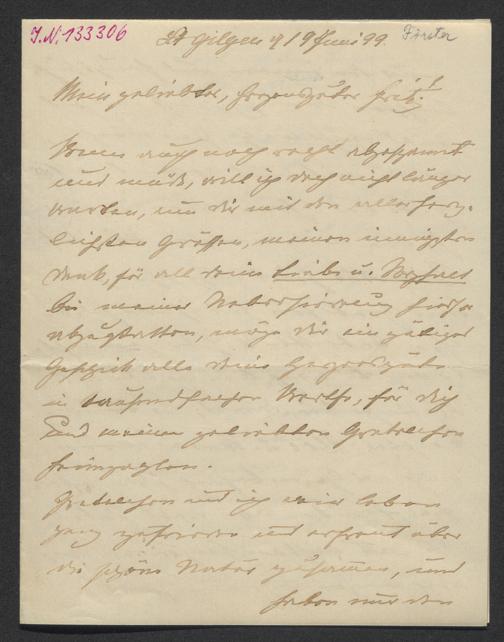 J.N. 133306
St Gilgen 19 Juni 99.
Förster
Mein geliebter, herzensguter Fritz!
Wenn auch noch recht abgespannt
und müde, will ich doch nicht länger
warten, um dir mit den allerherz-
lichsten Grüssen, meinen innigsten
Dank, für all deine Liebe u. Vorsorge
bei meiner Uebersiedelung hierher
abzustatten, möge dir ein gütiges
Geschick alle deine Herzensgüte
in tausendfachem Werthe, für dich
und meine geliebten
heimzahlen.
und ich wir leben
ganz zufrieden und erfreut über
die schöne Natur zusammen, und
haben nur den